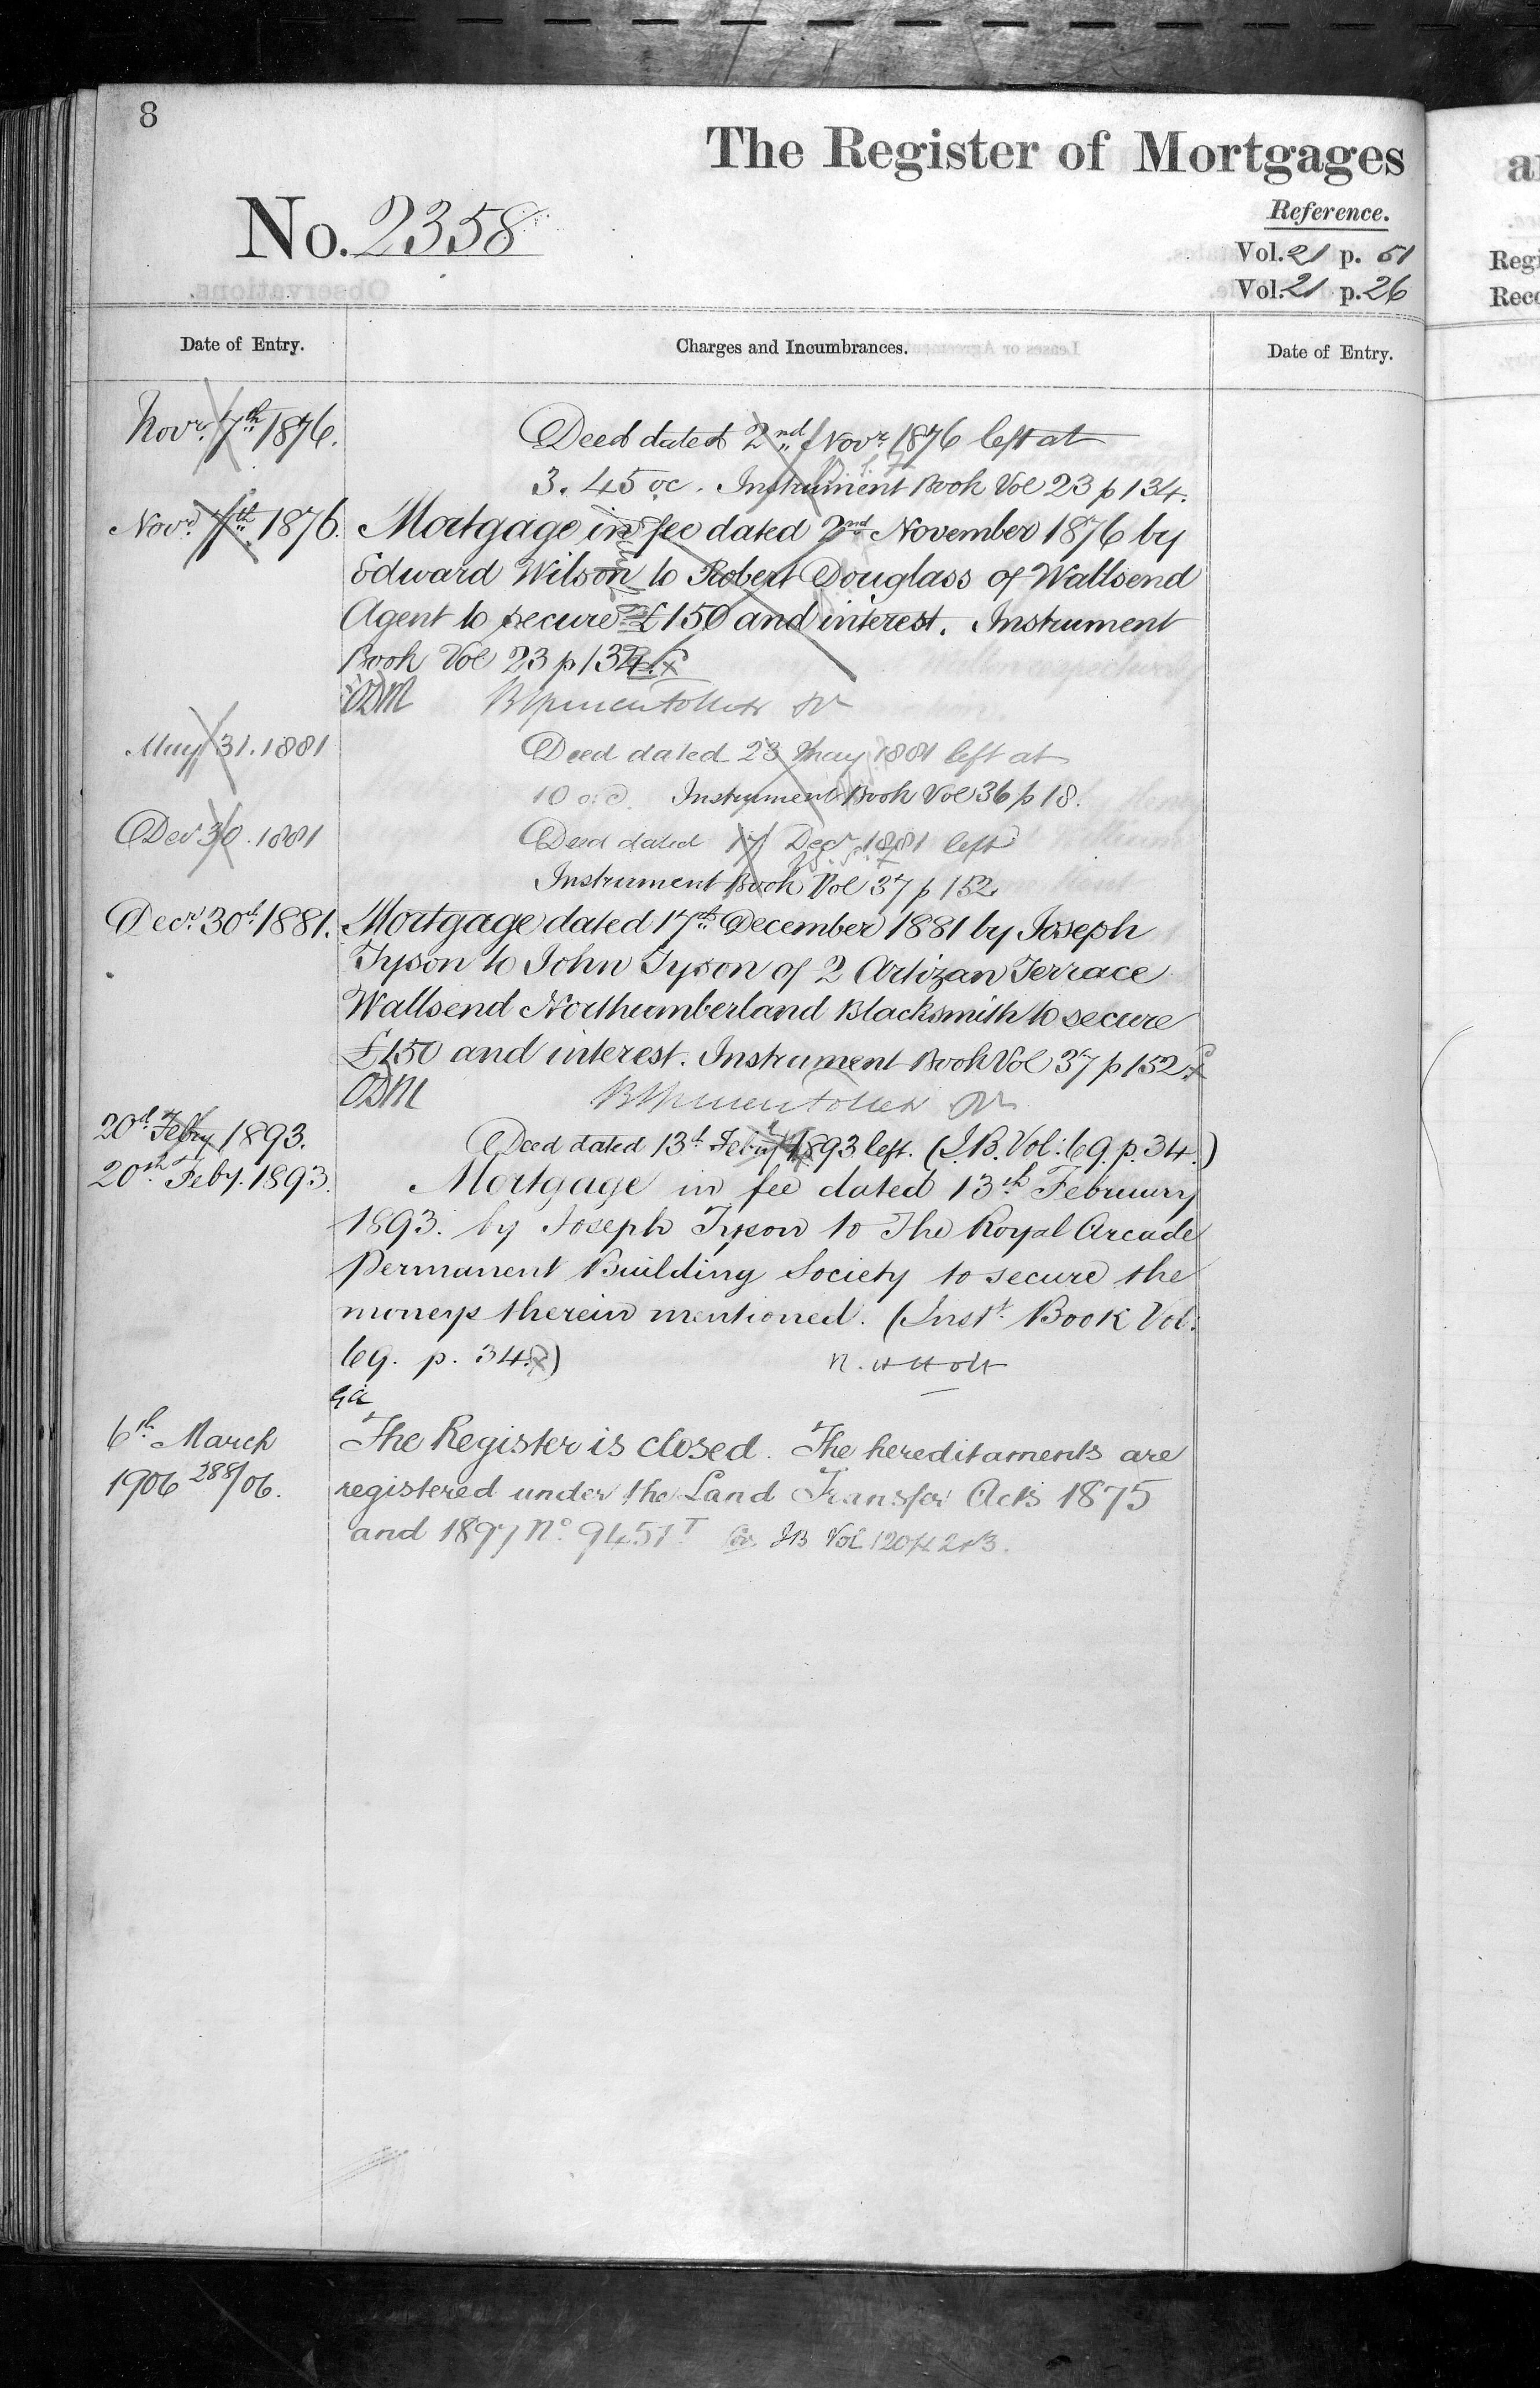 8
The Register of Mortgages
No. 2358
Reference.
Vol. 21 p. 51
Vol. 21 p. 26
Date of Entry. Charges and Incumbrances. Date of Entry.
Novr. 7th 1876. Deed dated 2nd Novr 1876 left at
3.45 oc. Instrument Book Vol 23 p 134.
Novr. 7th 1876. Mortgage in fee dated 2nd November 1876 by
Edward Wilson to Robert Douglass of Wallsend
Agent to secure £150 and interest. Instrument
Book Vol 23 p 134
ODM
May 31. 1881 Deed dated 23 May 1881 left at
10 o.c. Instrument Book Vol 36 p 18.
Decr 30. 1881 Deed dated 17 Decr 1881 left
Instrument Book Vol 37 p 152
Decr. 30th 1881. Mortgage dated 17th December 1881 by Joseph
Tyson to John Tyson of 2 Artizan Terrace
Wallsend Northumberland Blacksmith to secure
£150 and interest. Instrument Book Vol 37 p 152
ODM
20th Feby 1893. Deed dated 13th Feby 1893 left. (I.B. Vol: 69. p. 34.)
20th Feby. 1893. Mortgage in fee dated 13th February
1893. by Joseph Tyson to The Royal Arcade
Permanent Building Society to secure the
moneys therein mentioned. (Inst. Book Vol:
69. p. 34.)
6th March The Register is closed. The hereditaments are
1906 288/06. registered under the Land Transfer Acts 1875
and 1897 No. 9451T IB Vol 120